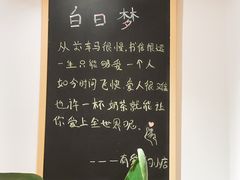 白日梦
从前车马很慢,书信很远
一生只能够爱一个人
如今时间飞快,爱人很难
也许一杯奶茶就能让
你爱上全世界呢
———有
小店